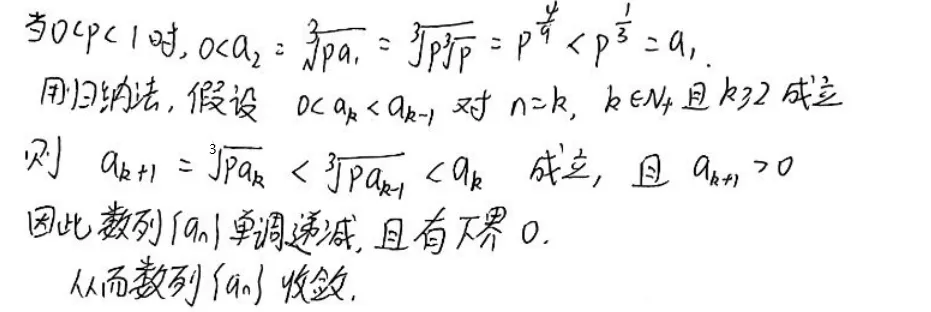 当0<p<1时, 0<a₂ = ∛(pa₁) = ∛(p∛p) = p^(4/9) < p^(1/3) = a₁.
用归纳法, 假设 0<aₖ<aₖ₋₁ 对 n=k, k∈N₊ 且 k≥2 成立
则 aₖ₊₁ = ∛(paₖ) < ∛(paₖ₋₁) < aₖ 成立, 且 aₖ₊₁>0
因此数列{aₙ}单调递减, 且有下界 0.
从而数列{aₙ} 收敛.